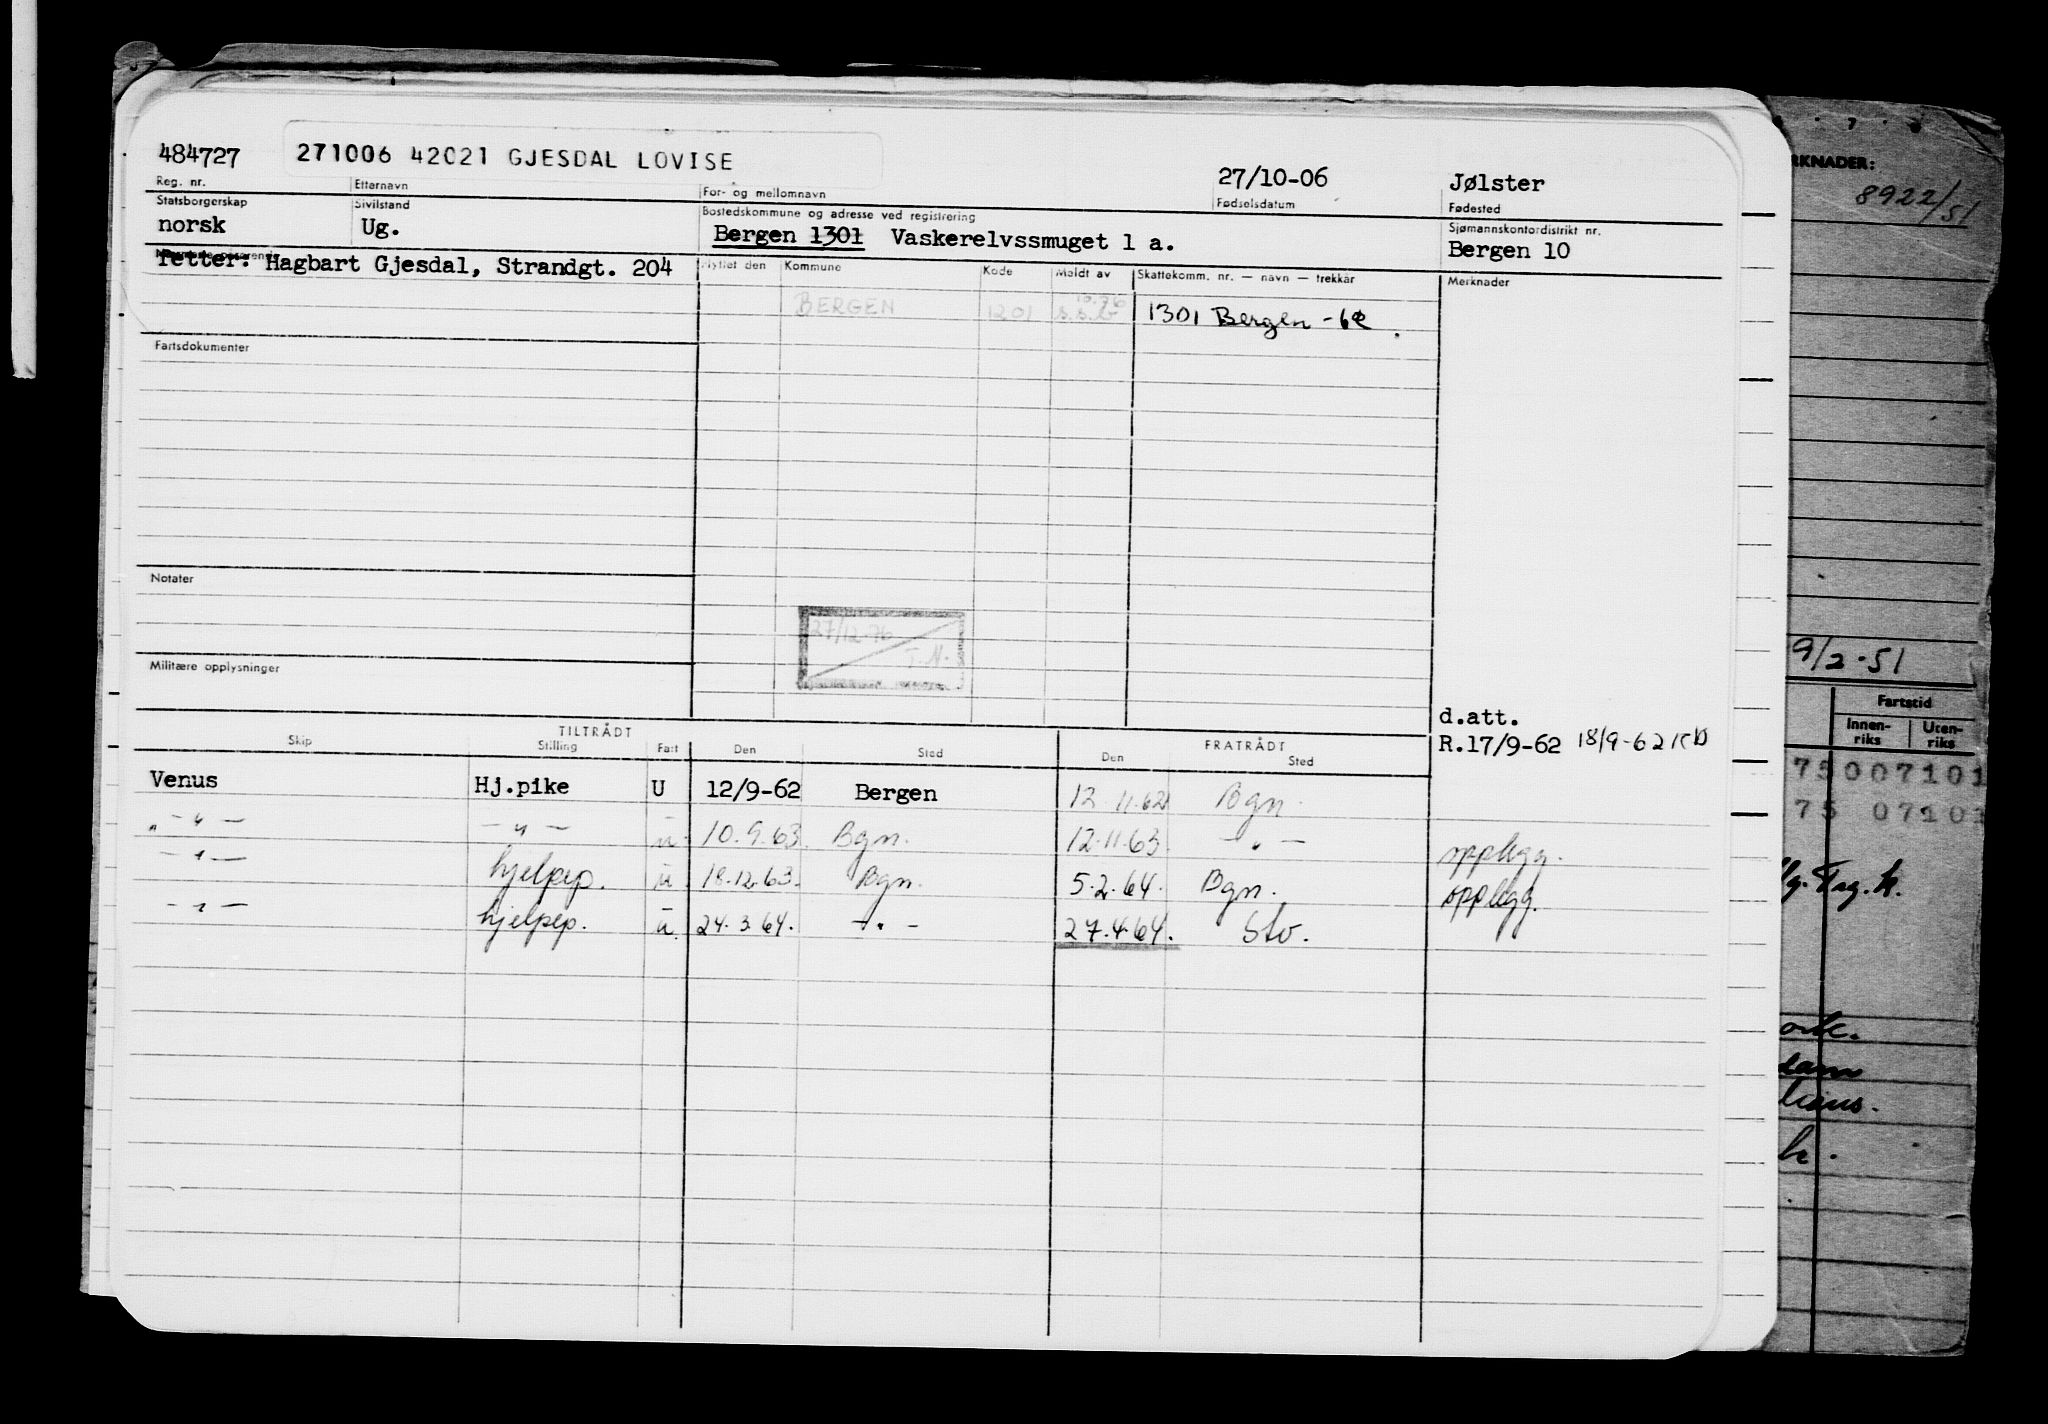 484727 271006 42021 GJESDAL LOVISE 27/10-06 Jølster
Reg. nr. Etternavn For- og mellomnavn Fødselsdatum Fødested
Statsborgerskap Sivilstand Bostedskommune og adresse ved registrering Sjømannskontordistrikt nr.
norsk Ug. Bergen 1301 Vaskerelvssmuget 1 a. Bergen 10
Fetter: Hagbart Gjesdal, Strandgt. 204
Flyttet den Kommune Kode Meldt av Skattekomm. nr. — navn — trekkår Merknader
BERGEN 1201 10.76 1301 Bergen -62
Fartsdokumenter
Notater
27/12-76
T.N.
Militære opplysninger
d.att.
R.17/9-62 18/9-62 KD
TILTRÅDT FRATRÅDT
Skip Stilling Fart Den Sted Den Sted
Venus Hj.pike U 12/9-62 Bergen 12.11.62 Bgn.
„ - " - - " - u. 10.9.63. Bgn. 12.11.63. - " - opplegg.
- " - hjelpep. u 18.12.63. Bgn. 5.2.64. Bgn. opplegg.
- " - hjelpep. u. 24.3.64. - " - 27.4.64. Stv.
RKNADER:
8922/51
9/2.51
Fartstid
Innen-riks Uten-riks
75007101
75 0710